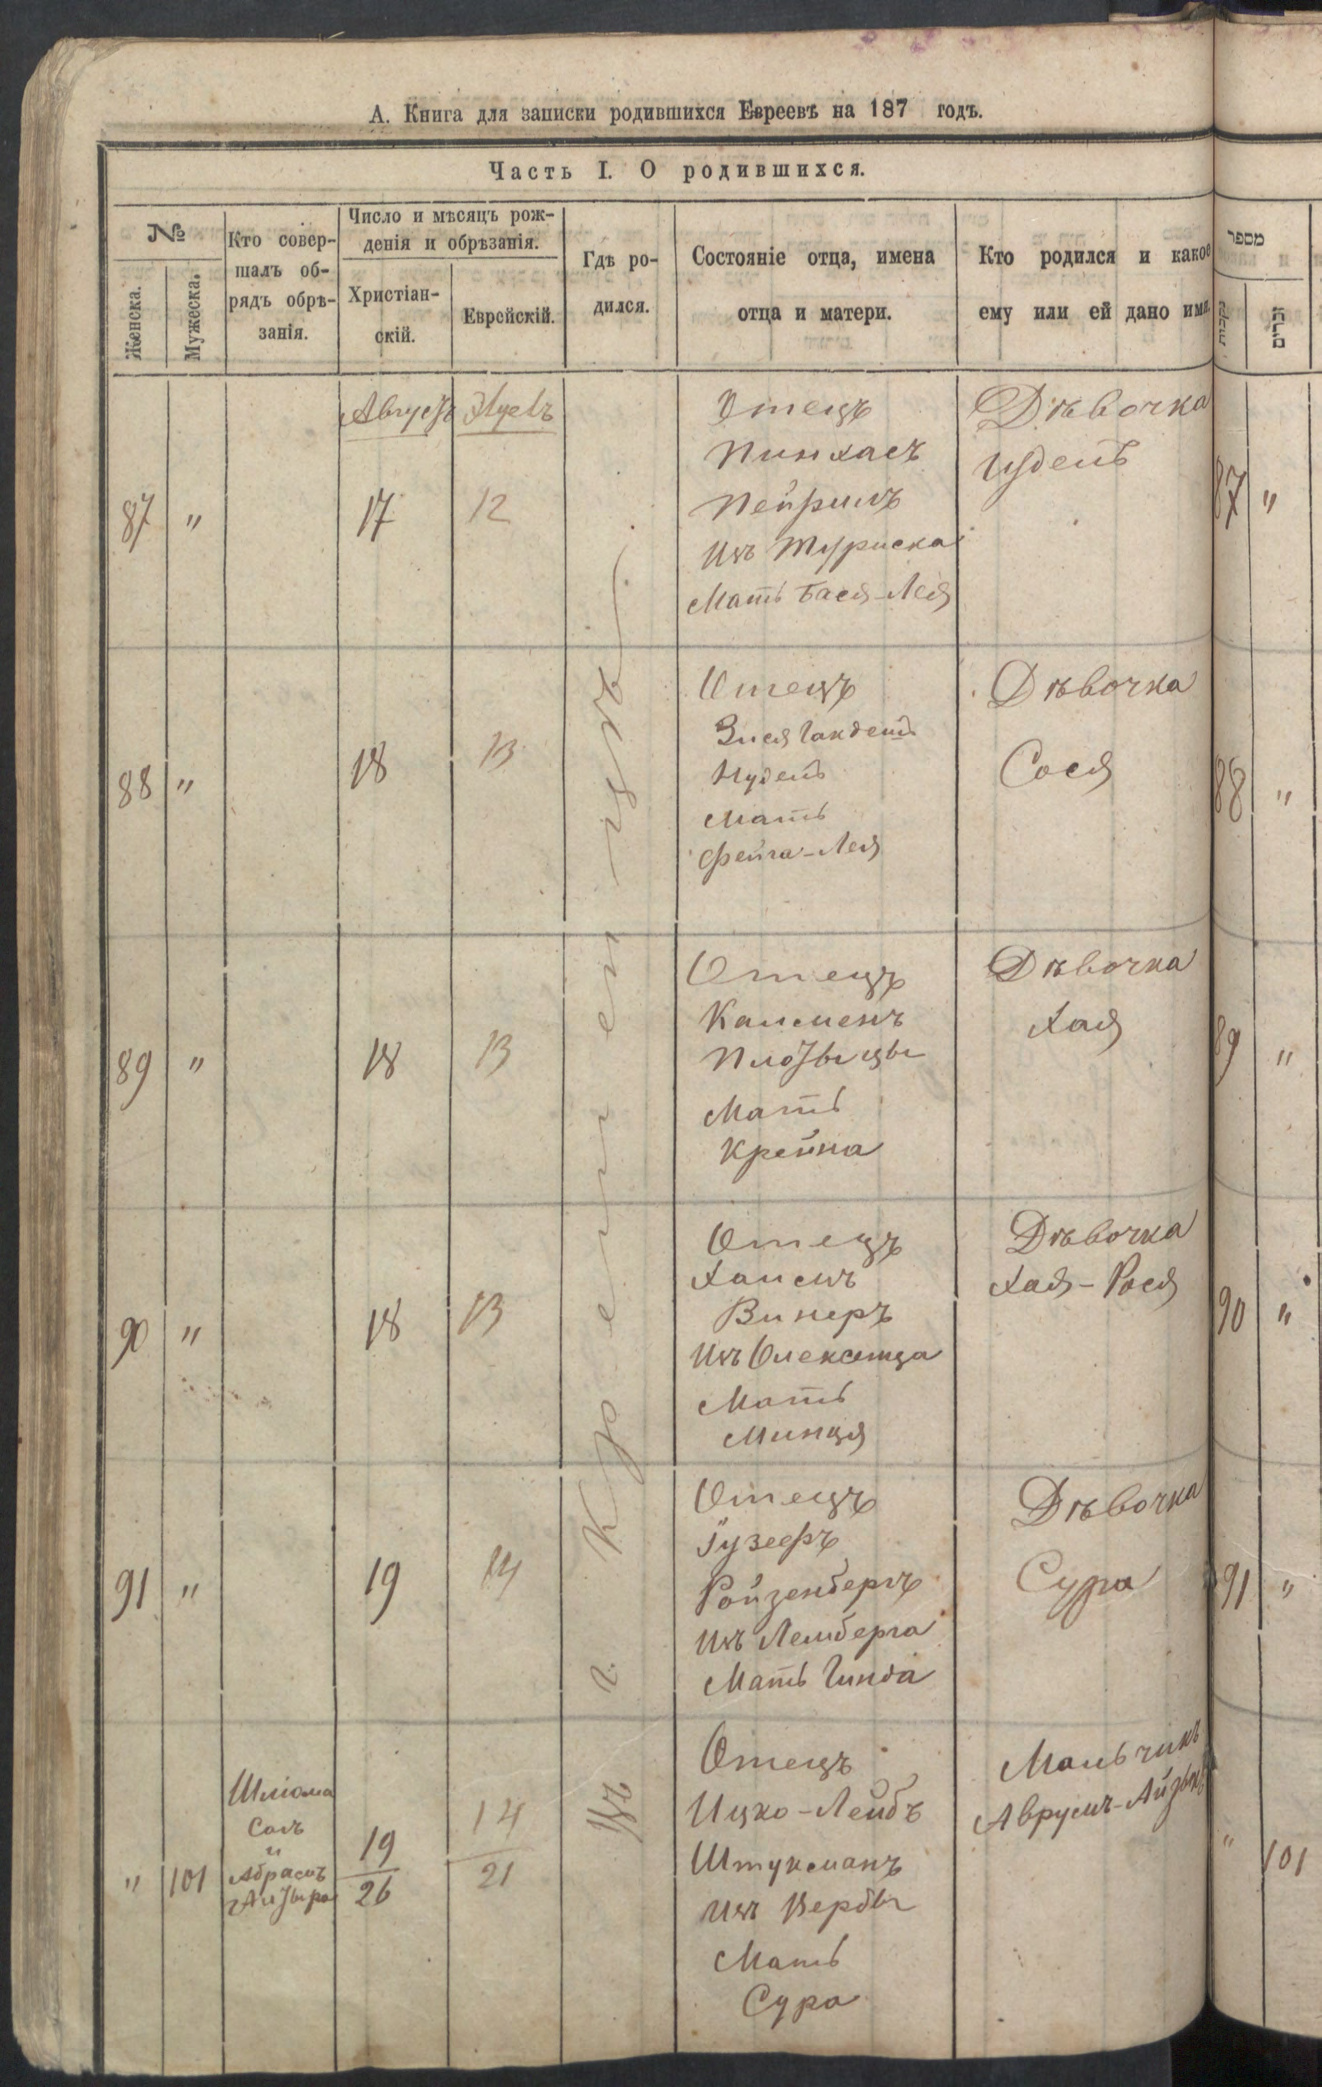 А. Книга для записки родившихся Евреевъ на 187 годъ.
Часть I. О родившихся.
№
Женска.
Мужеска.
Кто совер-
шалъ об-
рядъ обрѣ-
занія.
Число и мѣсяцъ рож-
денія и обрѣзанія.
Христіан-
скій.
Еврейскій.
Гдѣ ро-
дился.
Состояніе отца, имена
отца и матери.
Кто родился и какое
ему или ей дано имя.
מספר
נקבות
זכרים
Августъ
87 " 17 12
Отецъ
Пинхасъ
Изъ Туриска
Мать Бася-Лея
Дѣвочка
87 "
88 " 18 13
Отецъ
Зися
Нудель
Мать
Фейга-Лея
Дѣвочка
Сося
88 "
89 " 18 13
Отецъ
Калменъ
Мать
Крейна
Дѣвочка
Хая
89 "
90 " 18 13
Отецъ
Хаимъ
Винеръ
Изъ
Мать
Минця
Дѣвочка
Хая-Рося
90 "
91 " 19 14
Отецъ
Іузефъ
Ройзенбергъ
Изъ Лемберга
Мать Гинда
Дѣвочка
Сура
91 "
" 101
Шлiома
Салъ
и
Абрамъ
19
26
14
21
Отецъ
Ицко-Лейбъ
Штукманъ
Изъ Вербы
Мать
Сура
Мальчикъ
Аврумъ-Айзыкъ
" 101
Въ г. Кременцѣ